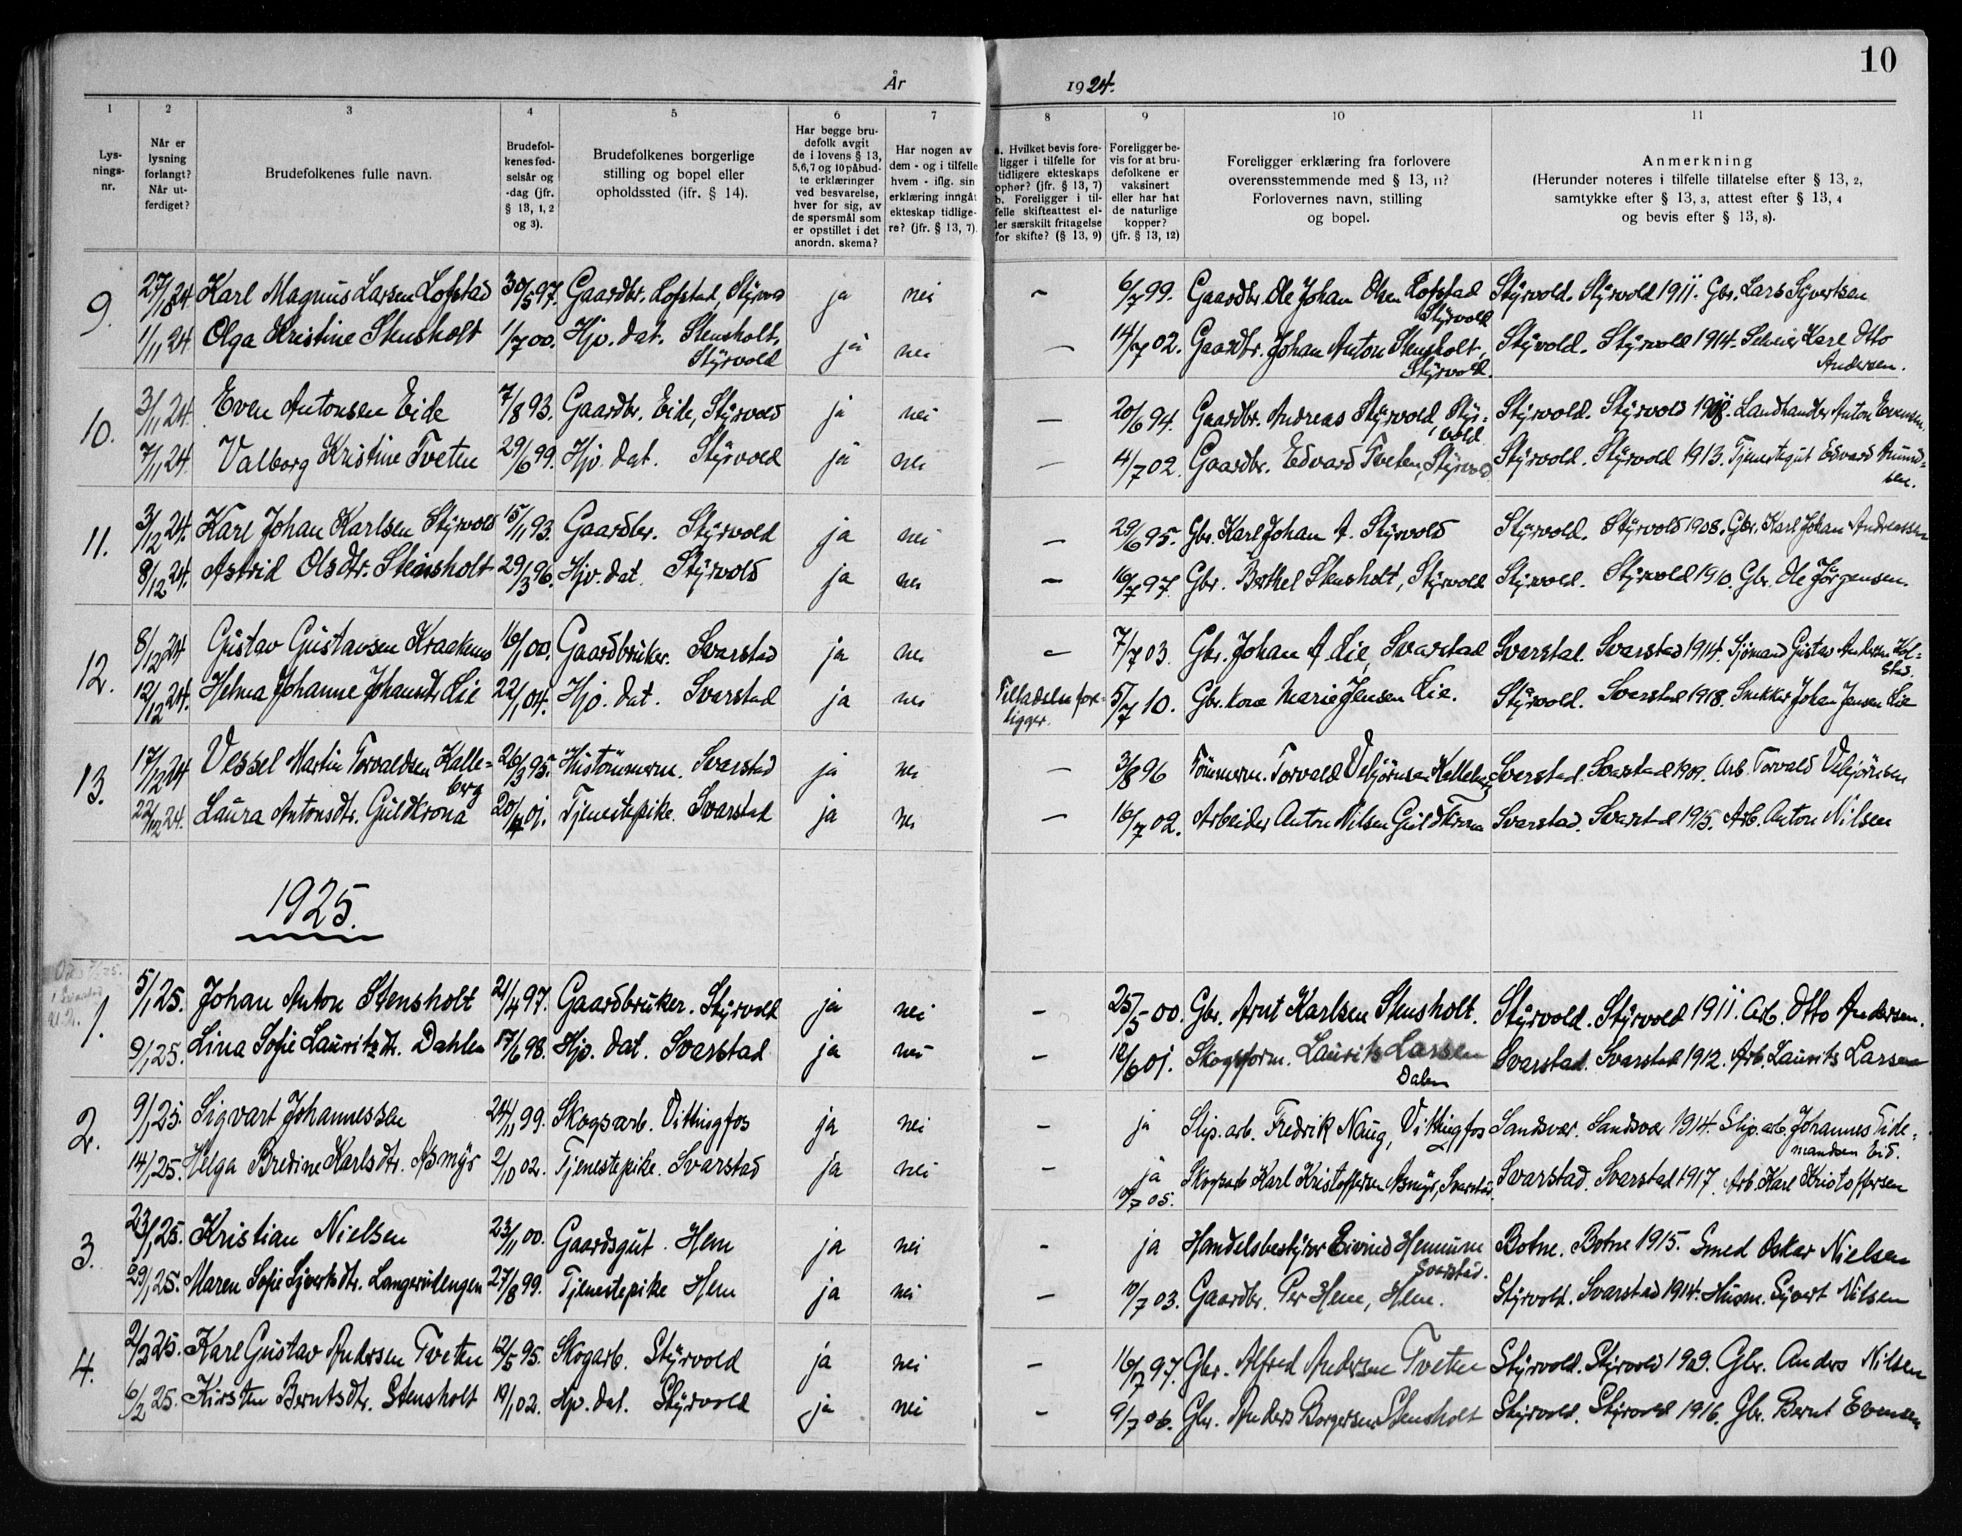 År 1924. 10
1 2 3 4 5 6 7 8 9 10 11
Lysningsnr.
Når er lysning forlangt? Når utferdiget?
Brudefolkenes fulle navn.
Brudefolkenes fødselsår og -dag (jfr. § 13, 1, 2 og 3).
Brudefolkenes borgerlige stilling og bopel eller opholdssted (ifr. § 14).
Har begge brudefolk avgit de i lovens § 13, 5,6,7 og 10 påbudte erklæringer ved besvarelse, hver for sig, av de spørsmål som er opstillet i det anordn. skema?
Har nogen av dem - og i tilfelle hvem - iflg. sin erklæring inngåt ekteskap tidligere? (jfr. § 13, 7).
a. Hvilket bevis foreligger i tilfelle for tidligere ekteskaps ophør? (jfr. § 13, 7) b. Foreligger i tilfelle skifteattest eller særskilt fritagelse for skifte? (§ 13, 9)
Foreligger bevis for at brudefolkene er vaksinert eller har hat de naturlige kopper? (jfr. § 13, 12)
Foreligger erklæring fra forlovere overensstemmende med § 13, 11? Forlovernes navn, stilling og bopel.
Anmerkning (Herunder noteres i tilfelle tillatelse efter § 13, 2, samtykke efter § 13, 3, attest efter § 13, 4 og bevis efter § 13, 8).
9. 27/10 24 Karl Magnus Larsen Lofstad 30/5 97. Gaardbr. Lofstad, Styrvold ja nei - 6/7 99. Gaardbr. Ole Johan Olsen Lofstad Styrvold Styrvold. Styrvold 1911. Gbr. Lars Syvertsen
1/11 24 Olga Kristine Stensholt 1/7 00. Hjv. dat. Stensholt, Styrvold ja nei - 14/7 02. Gaardbr. Johan Anton Stensholt, Styrvold. Styrvold. Styrvold 1914. Karl Otto Andersen.
10. 3/11 24. Even Antonsen Eide 7/8 93. Gaardbr. Eide, Styrvold ja nei - 20/6 94. Gaardbr. Andreas Styrvold, Styrvold Styrvold. Styrvold Landhandler Anton Evensen
7/11 24. Valborg Kristine Tveten 29/6 99. Hjv. dat. Styrvold ja nei - 4/7 02. Gaardbr. Edvard Tveten, Styrvold Styrvold. Styrvold 1913. Tjenestegut Edvard Amundsen.
11. 3/12 24. Karl Johan Karlsen Styrvold 15/11 93. Gaardbr. Styrvold ja nei - 29/6 95. Gbr. Karl Johan A. Styrvold Styrvold. Styrvold 1908. Gbr. Karl Johan Andreassen
8/12 24. Astrid Olsdtr. Stensholt 29/3 96. Hjv. dat. Styrvold ja nei - 16/7 97. Gbr. Berthel Stensholt, Styrvold Styrvold. Styrvold 1910. Gbr. Ole Jørgensen.
12. 8/12 24 Gustav Gustavsen Kraakenes 16/1 00. Gaardbruker. Svarstad ja nei - 7/7 03. Gbr. Johan A Lie, Svarstad Svarstad. Svarstad 1914. Sjömand Gustav Andersen
12/12 24. Helma Johanne Johansdtr. Lie 22/1 04. Hjv. dat. Svarstad ja nei Tilladelse foreligger. 5/7 10. Gbr. kone Marie Jensen Lie. Styrvold. Svarstad 1918. Snekker Johan Jensen Lie
13. 17/12 24 Vessel Martin Torvaldsen Kalleberg 26/3 95. Hustömmerm. Svarstad ja nei - 3/8 96 Tömmerm. Torvald Vebjörnsen Kalleberg Svarstad. Svarstad 1909. Arb. Torvald Vebjörnsen
22/12 24. Laura Antonsdtr. Guldkrona 20/4 01. Tjenestepike. Svarstad ja nei - 16/7 02. Arbeider Anton Nilsen Guldkrona Svarstad. Svarstad 1915. Arb. Anton Nilsen
1925.
1. 5/1 25. Johan Anton Stensholt 21/4 97. Gaardbruker. Styrvold ja nei - 25/5 00. Gbr. Arnt Karlsen Stensholt. Styrvold. Styrvold 1911. Arb. Otto Andersen.
9/1 25. Lina Sofie Lauritzdtr. Dahlen 17/6 98. Hjv. dat. Svarstad ja nei - 12/6 01. Skogsform. Laurits Larsen Dalen Svarstad. Svarstad 1912. Arb. Laurits Larsen
2. 9/1 25. Sigvart Johannessen 24/11 99. Skogsarb. Vittingfos ja nei - ja Slip. arb. Fredrik Naug, Vittingfos Sandsvær. Sandsvær 1914. Slip. arb. Johannes Tidemandsen Eid.
14/1 25. Helga Bredine Karlsdtr. Asmyr 2/10 02. Tjenestepike. Svarstad ja nei - ja /7 05. Skogsarb Karl Kristoffersen Asmyr, Svarstad. Svarstad. Svarstad 1917. Arb. Karl Kristoffersen
3. 23/1 25. Kristian Nielsen 23/11 00. Gaardsgut. Hem ja nei - ja Handelsbestyrer Eivind Hemnum Svarstad. Botne. Botne 1915. Smed Oskar Nielsen
29/1 25. Maren Sofie Syvertsdtr. Langerudengen 27/8 99. Tjenestepike Hem ja nei - 10/7 03. Gaardbr. Per Hem, Hem. Styrvold. Svarstad 1914. Husm. Syvert Nilsen
4. 2/2 25. Karl Gustav Andersen Tveten 12/5 95. Skogarb. Styrvold ja nei - 16/7 97. Gbr. Alfred Andersen Tveten Styrvold. Styrvold 1909. Gbr. Anders Nilsen
6/2 25. Kirsten Berntsdtr. Stensholt 19/1 02. Hjv. dat. Styrvold ja nei - 9/7 06. Gbr. Anders Borgersen Stensholt Styrvold. Styrvold 1916. Gbr. Bernt Evensen